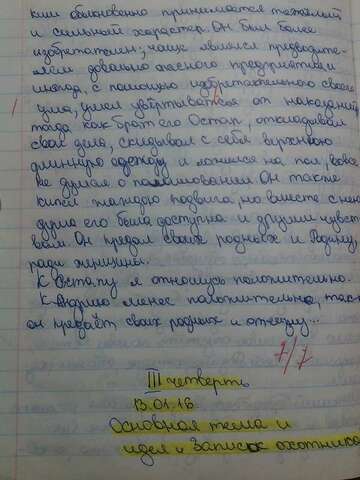 кии обыкновенно принимается тяжелый
и сильный характер. Он был более
изобретателен; чаще являлся предводите-
лем довольно опасного предприятия и
иногда, с помощью изобретательного своего
ума, умел увёртываться от наказания
тогда как брат его Остап, откладывал
свои дела, скидывал с себя верхнюю
одежду и ложился на пол, вовсе
не думая о помиловании. Он также
кипел жаждою подвига, но вместе с нею
душа его была доступна и другим чувст
вам. Он предал своих родных и Родину
ради женщины.
К Остапу я отношусь положительно.
К Андрию менее положительно, так
он предаёт своих родных и отчизну...
7/7
III четверть
13.01.16
Основная тема и
идея и Записок охотника